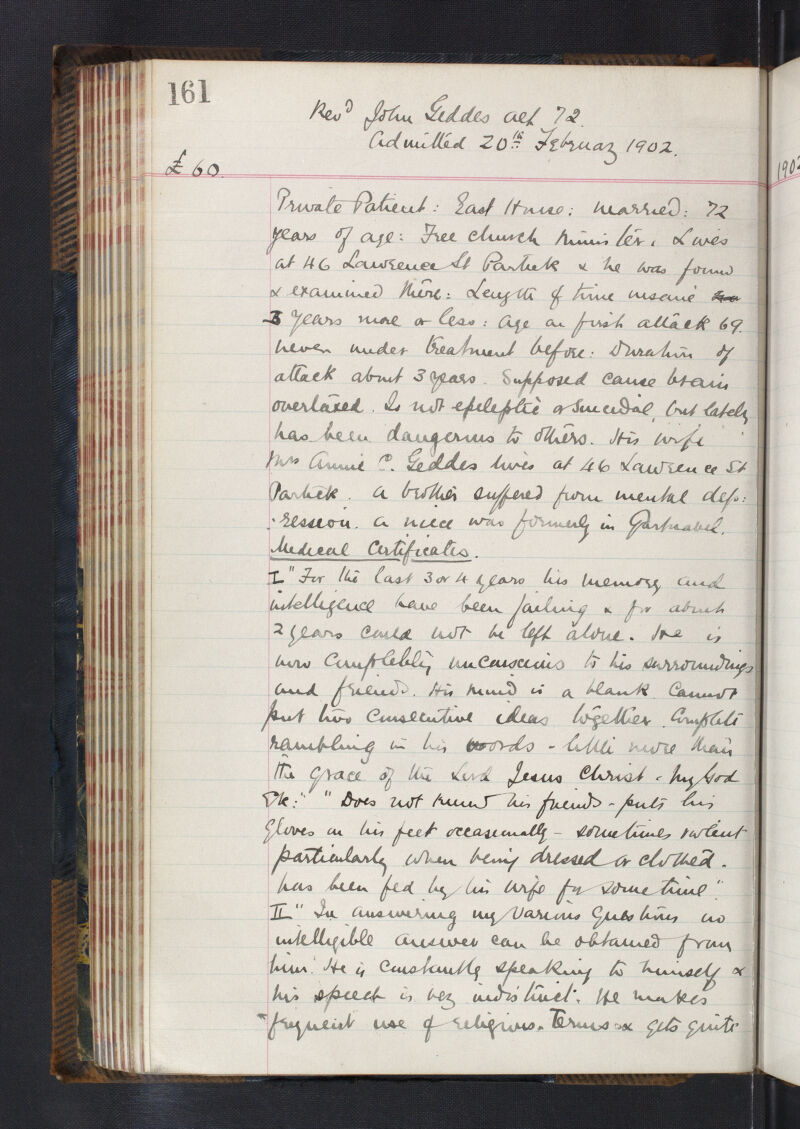 161
Revd John Geddes aet 72.
Admitted 20th February 1902.
£60.
1902
Private Patient: East House: married: 72
years of age: Free church Minister. Lives
at 46 Lawrence St Partick & he was found
& examined there: Length of time insane
3 years more or less: age on first attack 69.
never under treatment before: Duration of
attack about 3 years. Supposed cause brain
overtaxed. Is not epileptic or suicidal, but lately
has been dangerous to others. His wife
Mrs Annie C. Geddes lives at 46 Lawrence St
Partick. a brother suffered from mental dep:
:ression. a niece was formerly in Gartnavel.
Medical Certificates.
I "For the last 3 or 4 years his memory and
intelligence have been failing & for about
2 years could not be left alone. He is
now completely unconscious to his surroundings
and friends. His mind is a blank. Cannot
put two consecutive ideas together. Complete
rambling in his words - little more than
the grace of the Lord Jesus Christ - my God
Etc:" "Does not know his friends - puts his
gloves on his feet occasionally - sometimes violent
particularly when being dressed or clothed.
has been fed by his wife for some time".
II "In answering my various questions no
intelligible answer can be obtained from
him. He is constantly speaking to himself &
his speech is very indistinct. He makes
frequent use of religious terms & gets quite